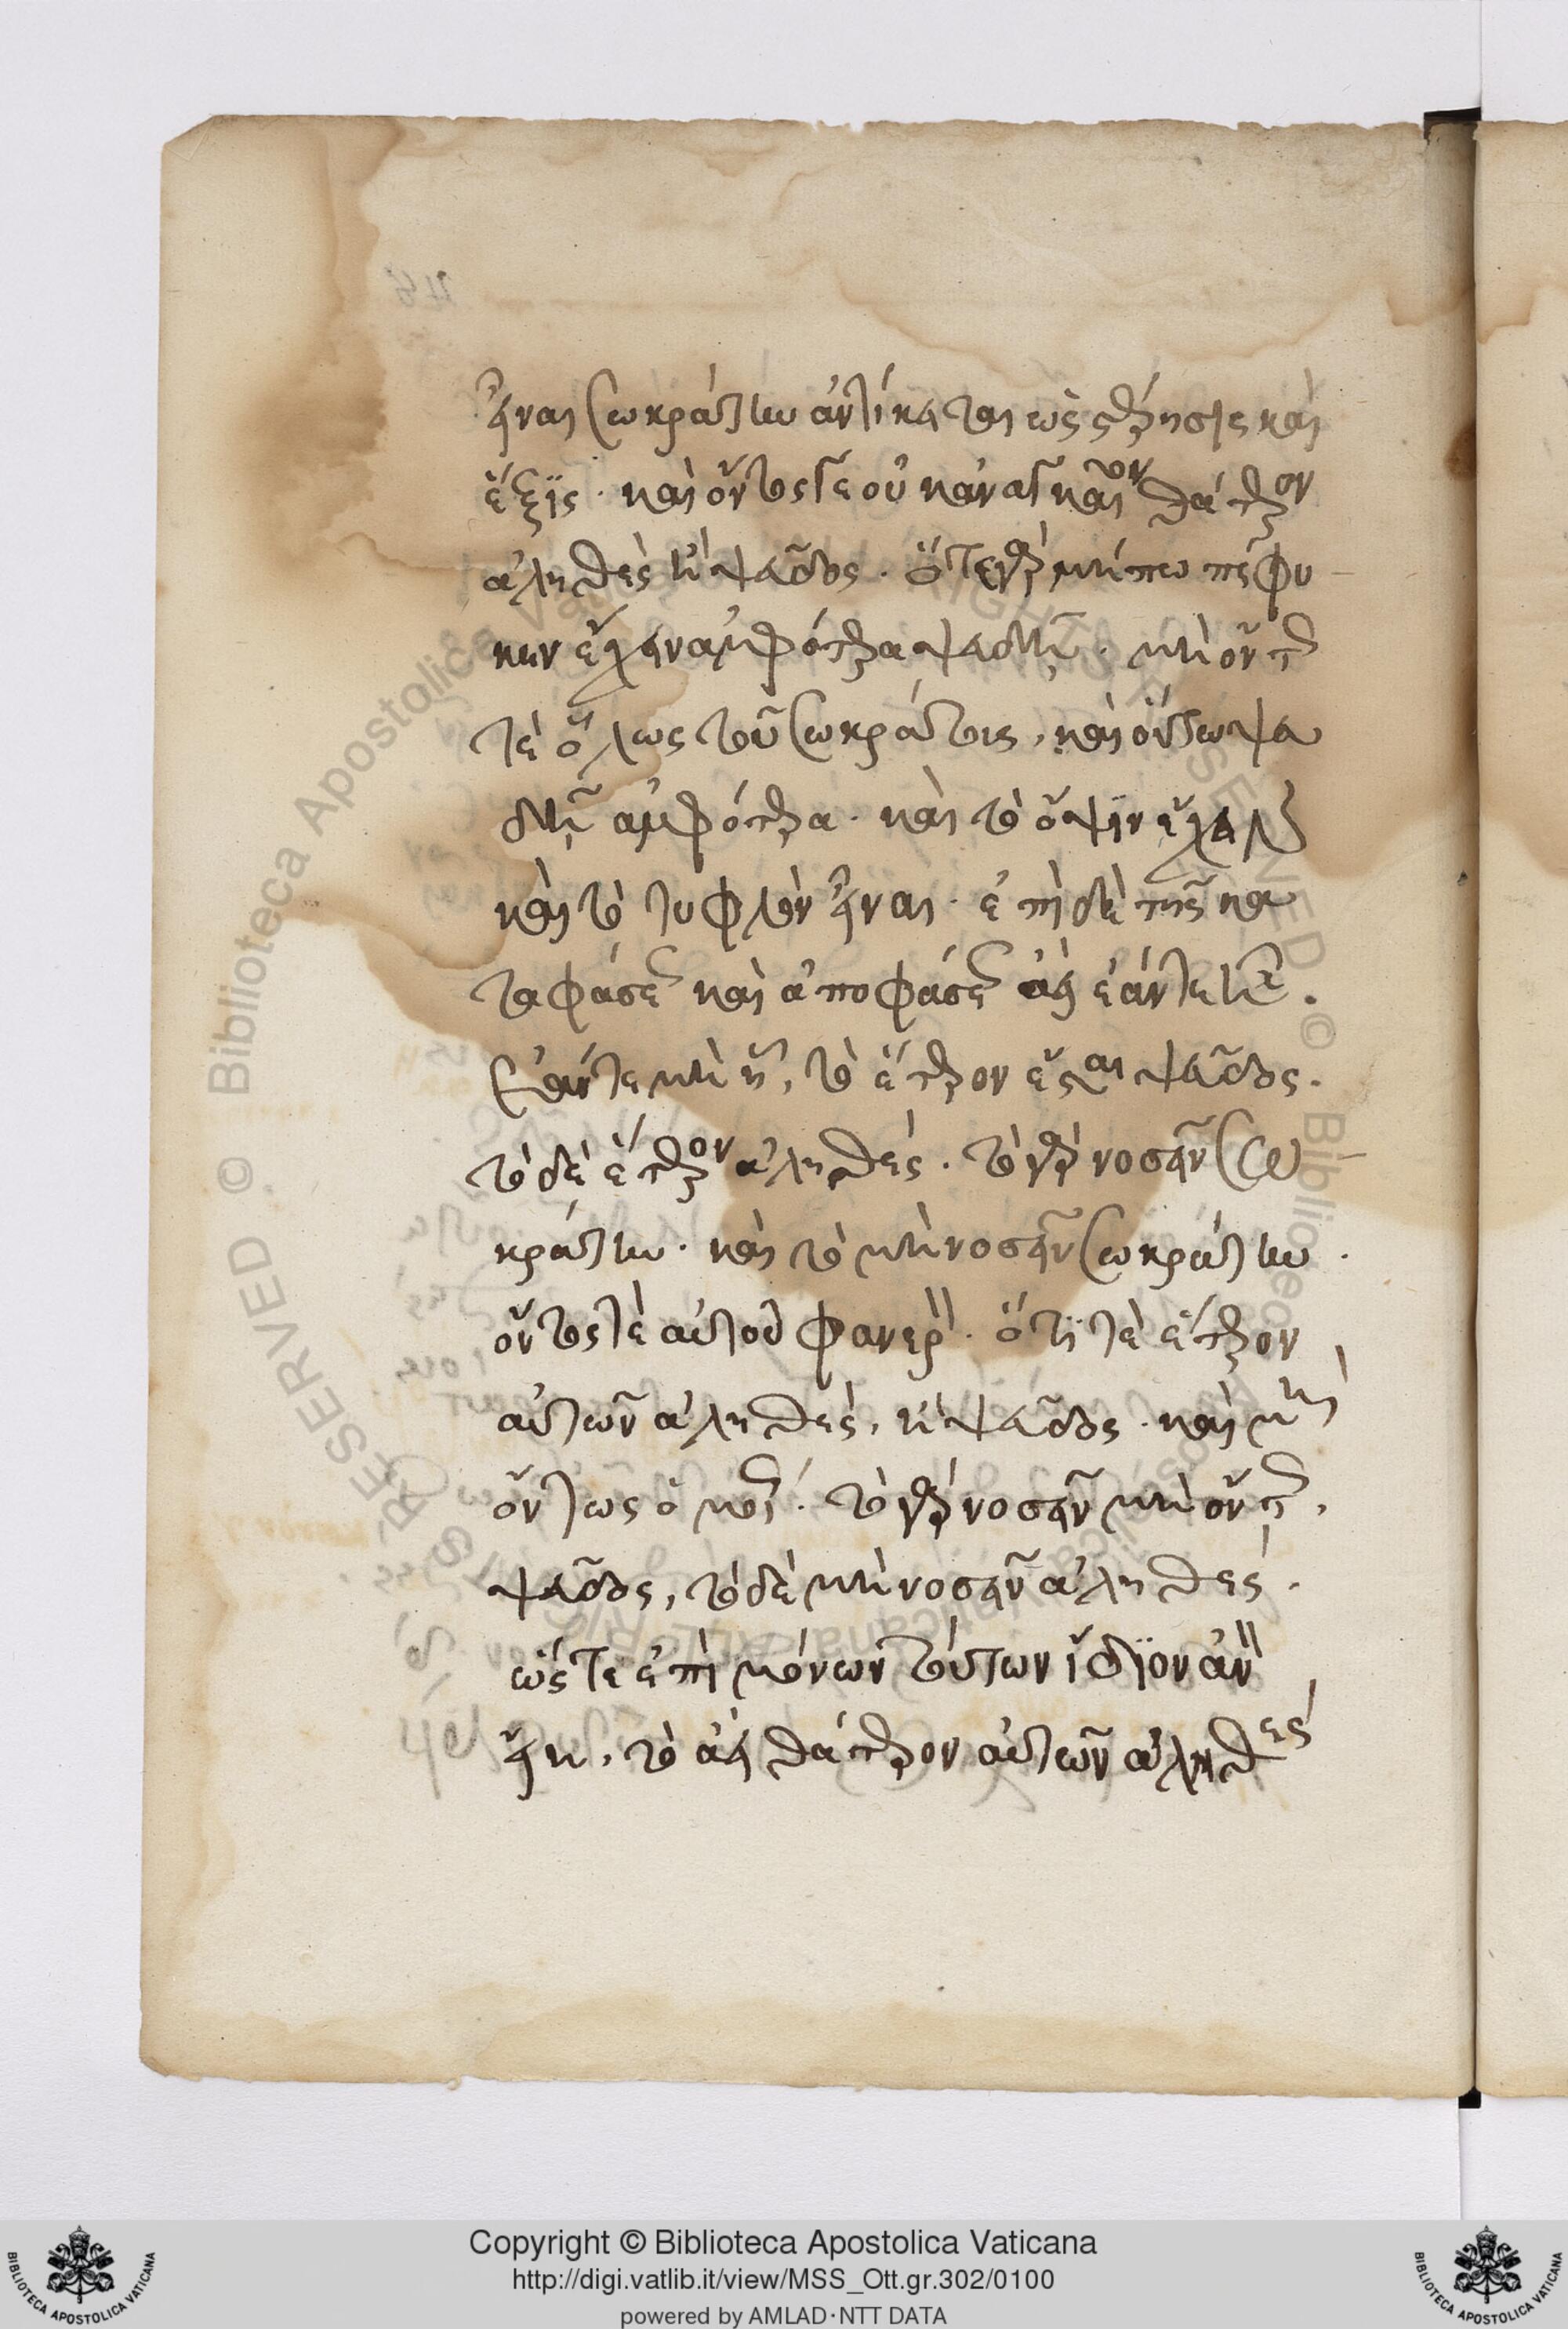 εἶναι Σωκράτην ἀντίκειται ὡς στέρησις καὶ
ἕξις· καὶ ὄντός γε οὐκ ἀναγκαῖον θάτερον
ἀληθὲς ἢ ψεῦδος. ὅτε γὰρ μήπω πέφυ-
κεν ἔχειν ἀμφότερα ψευδῆ. μὴ ὄντος
τὲ ὅλως τοῦ Σωκράτους, καὶ οὕτω ψευ
δῆ ἀμφότερα· καὶ τὸ ὄψιν ἔχειν
καὶ τὸ τυφλὸν εἶναι. ἐπὶ δὲ τῆς κα
ταφάσεως καὶ ἀποφάσεως ἀεὶ ἐάντε ᾖ.
ἐάντε μὴ ᾖ, τὸ ἕτερον ἔσται ψεῦδος.
τὸ δὲ ἕτερον ἀληθές. τὸ γὰρ νοσεῖν Σω-
κράτην. καὶ τὸ μὴ νοσεῖν Σωκράτην.
ὄντός τὲ αὐτοῦ φανερὸν. ὅτι τὲ ἕτερον
αὐτῶν ἀληθὲς, ἢ ψεῦδος. καὶ μὴ
ὄντως ὁμοί. τὸ γὰρ νοσεῖν μὴ ὄντος,
ψεῦδος, τὸ δὲ μὴ νοσεῖν ἀληθές.
ὥστε ἐπὶ μόνων τούτων ἴδιον ἂν
εἴη, τὸ ἀεὶ θάτερον αὐτῶν ἀληθὲς
Copyright © Biblioteca Apostolica Vaticana
http://digi.vatlib.it/view/MSS_Ott.gr.302/0100
powered by AMLAD·NTT DATA